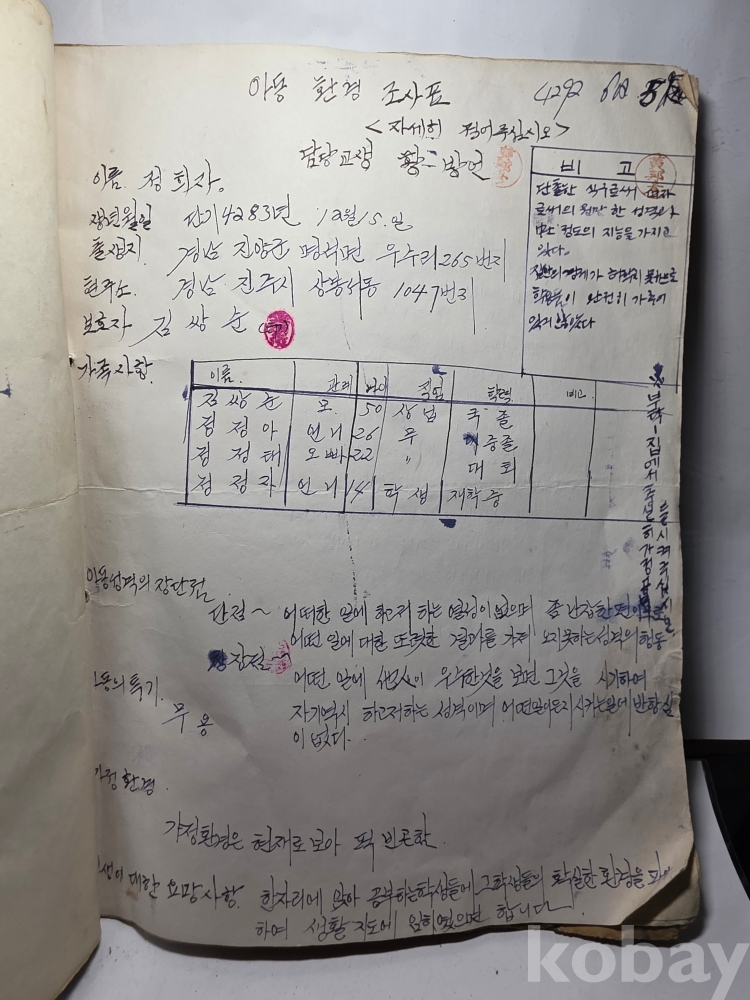 아동 환경 조사표
4292
< 자세히 적어주십시오 >
담당교생 황 방연
이름 정희자.
생년월일 단기4283년 12월15.일
출생지. 경남 진양군 명석면 우수리265번지
현주소. 경남 진주시 상봉서동 1047번지
보호자 김 쌍 순
비 고
단촐한 식구로써 여자
로써의 원만한 성격과
정도의 지능을 가지고
있다.
집안의 경제가 허락지 못함으로
학용품이 완전히 가추어
있지 않았다
가족사항.
이름. 관계 나이 직업 학력 비고.
김쌍순 모. 50 상업 국졸
정정아 언니 26 무 중졸
정정태 오빠 22 〃 대퇴
정정자 언니 14 학생 재학중
부탁-집에서 충실히 가정
들 시켜 주십시요
아동성격의 장단점.
단점~ 어떠한 일에 하고저 하는 열성이 없으며 좀 난장한 편이므로
어떤 일에 대한 또렷한 결과를 가져 오지못하는성격의 행동
장점~ 어떤 일에 他人이 우수한것을 보면 그것을 시기하여
자기역시 하고저하는 성격이며 어떤일이든지 시키는일에 반항심
이 없다.
아동의특기.
무용
가정환경.
가정환경은 현재로 보아 퍽 빈곤함.
대한 요망사항. 한자리에 앉아 공부하는학생들에 그학생들의 확실한 환경을
하여 생활지도에 임하였으면 합니다
kobay